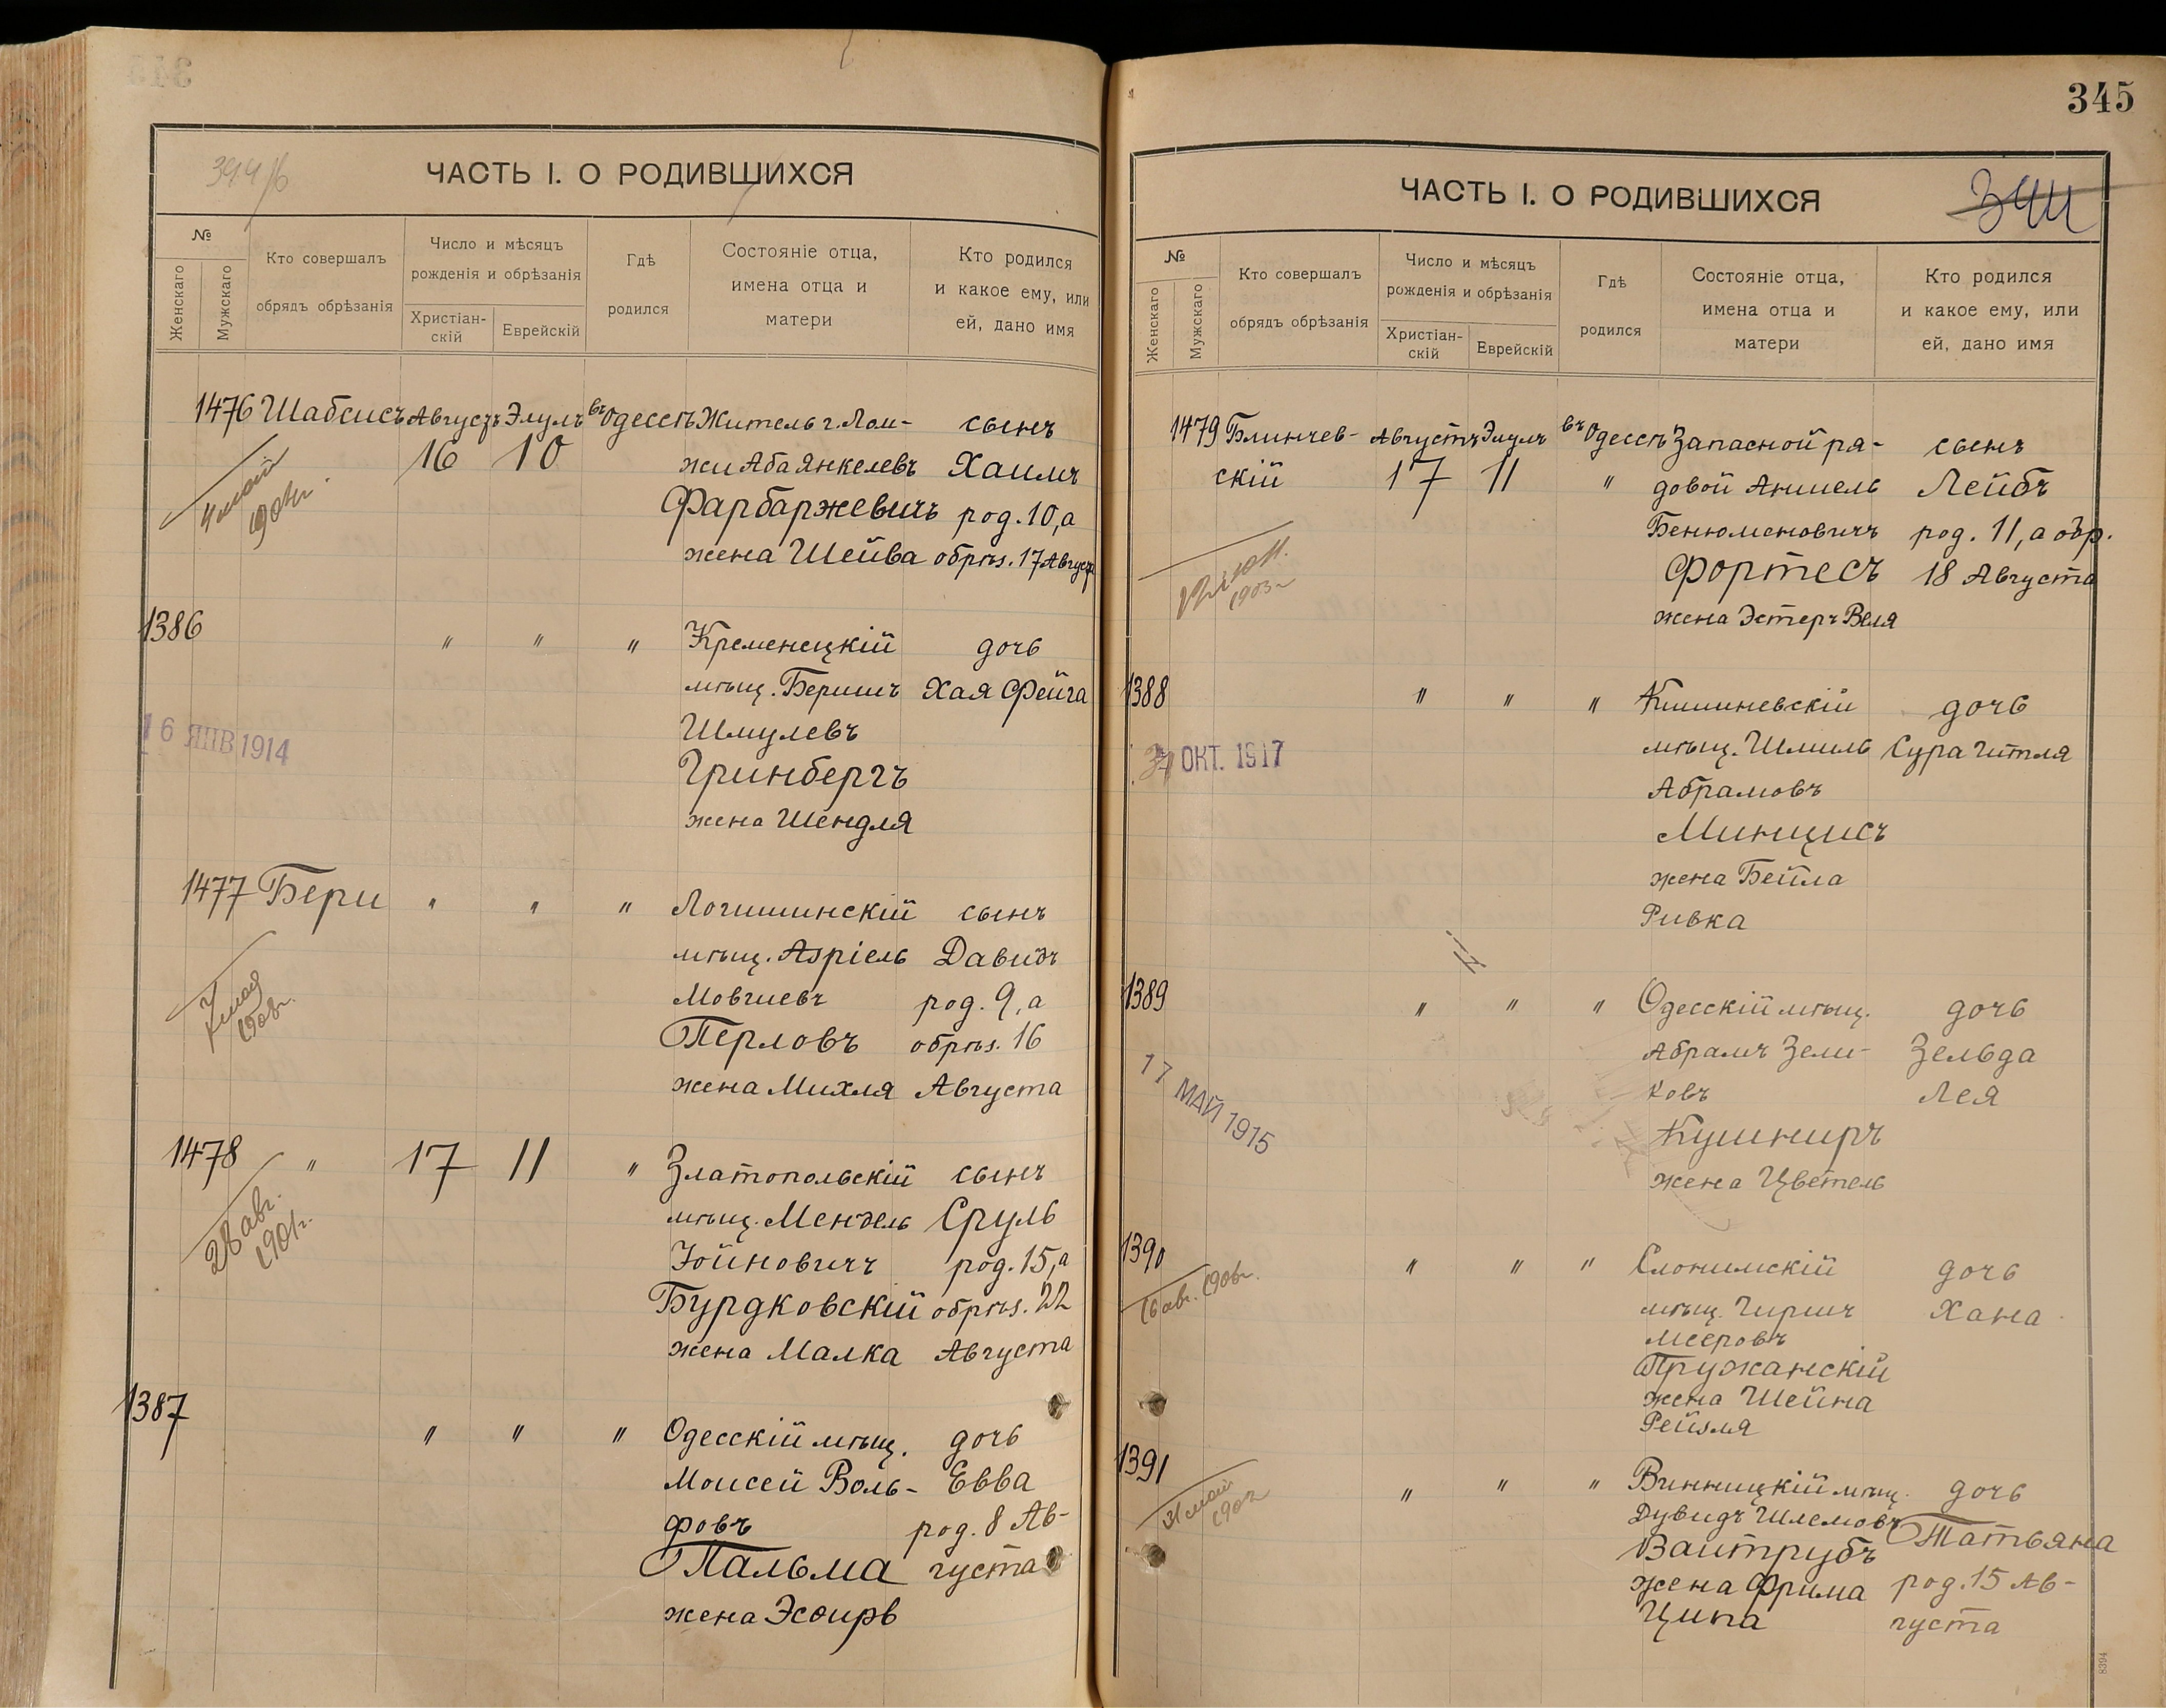 345
394/б
ЧАСТЬ I. О РОДИВШИХСЯ
№
Женскаго
Мужскаго
Кто совершалъ
обрядъ обрѣзанія
Число и мѣсяцъ
рожденія и обрѣзанія
Христіан-
скій
Еврейскій
Гдѣ
родился
Состояніе отца,
имена отца и
матери
Кто родился
и какое ему, или
ей, дано имя
1476 Шабсисъ Августъ Элулъ въ Одессѣ Житель г. Лом- сынъ
16 10 жи Аба Янкелевъ Хаимъ
4 май 1904 г. Фарбаржевичъ род. 10, а
жена Шейва обрѣз. 17 Августа
1386 " " " Кременецкій дочь
мѣщ. Беришъ Хая Фейга
16 ЯНВ 1914 Шмулевъ
Гринбергъ
жена Шендля
1477 Бери " " " Логишинскій сынъ
мѣщ. Азріель Давидъ
Мовшевъ род. 9, а
1908 г. Перловъ обрѣз. 16
жена Михля Августа
1478 " 17 11 " Златопольскій сынъ
мѣщ. Мендель Сруль
28 авг. 1901 г. Іойновичъ род. 15, а
Бурдковскій обрѣз. 22
жена Малка Августа
1387 " " " Одесскій мѣщ. дочь
Моисей Воль- Евва
фовъ род. 8 Ав-
Пальма густа
жена Эсѳирь
344
ЧАСТЬ I. О РОДИВШИХСЯ
№
Женскаго
Мужскаго
Кто совершалъ
обрядъ обрѣзанія
Число и мѣсяцъ
рожденія и обрѣзанія
Христіан-
скій
Еврейскій
Гдѣ
родился
Состояніе отца,
имена отца и
матери
Кто родился
и какое ему, или
ей, дано имя
1479 Блинчев- Августъ Элулъ въ Одессѣ Запасной ря- сынъ
скій 17 11 " довой Аншель Лейбъ
Бенюменовичъ род. 11, а обр.
1903 г Фортесъ 18 Августа
жена Эстеръ Веля
1388 " " " Кишиневскій дочь
мѣщ. Шмиль Сура Гитля
ОКТ. 1917 Абрамовъ
Минцисъ
жена Бейла
Ривка
1389 " " " Одесскій мѣщ. дочь
Абрамъ Зели- Зельда
17 МАЙ 1915 ковъ Лея
Кушниръ
жена Цветель
1390 " " " Слонимскій дочь
16 авг. 1906 г. мѣщ. Гиршъ Хана
Мееровъ
Пружанскій
жена Шейна
Рейзля
1391 " " " Винницкій мѣщ. дочь
31 май Дувидъ Шлемовъ Татьяна
Вайтрубъ
жена Фрима род. 15 Ав-
Ципа густа
8394